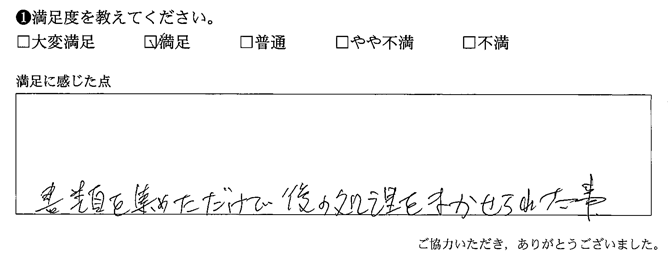 ❶満足度を教えてください。
□大変満足 ☑満足 □普通 □やや不満 □不満
満足に感じた点
書類を集めただけで後の処理をまかせられた事
ご協力いただき，ありがとうございました。